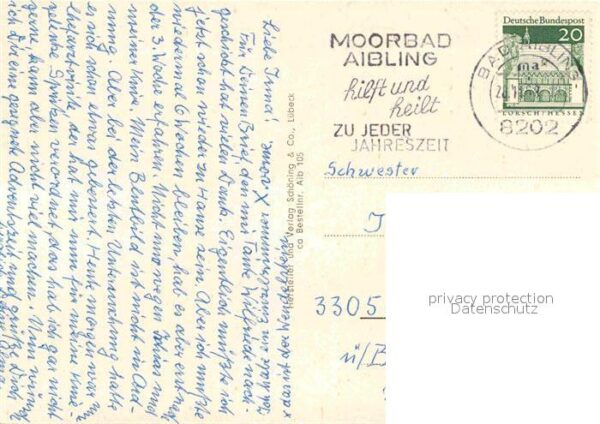 Liebe Irma!
Für Deinen Brief, den mir Tante Wilfriede nach-
geschickt hat vielen Dank. Eigentlich müßte ich
jetzt schon wieder zu Hause sein. Aber ich mußte
wiedermal 6 Wochen bleiben, hab es aber erst nach
der 3. Woche erfahren. Nicht nur wegen
meiner Knie. Mein Blutbild ist nicht in Ord-
nung. Aber bei der letzten Untersuchung hatte
es sich schon etwas gebessert. Heute morgen war
der hat mir nun für meine Knie-
gelenke Spritzen verordnet, das hab ich gar nicht
gerne, kann aber nicht viel machen. Nun wünsche
ich Dir eine gesegnete Adventszeit und grüße Dich
x das ist das Wendelsteingebirge
Hersteller und Verlag Schöning & Co., Lübeck
Bestellnr. Aib 105
MOORBAD
AIBLING
hilft und
heilt
ZU JEDER
JAHRESZEIT
Deutsche Bundespost
20
LORSCH/HESSEN
BAD AIBLING
ma
8202
Schwester
3305
ü/B
privacy protection
Datenschutz